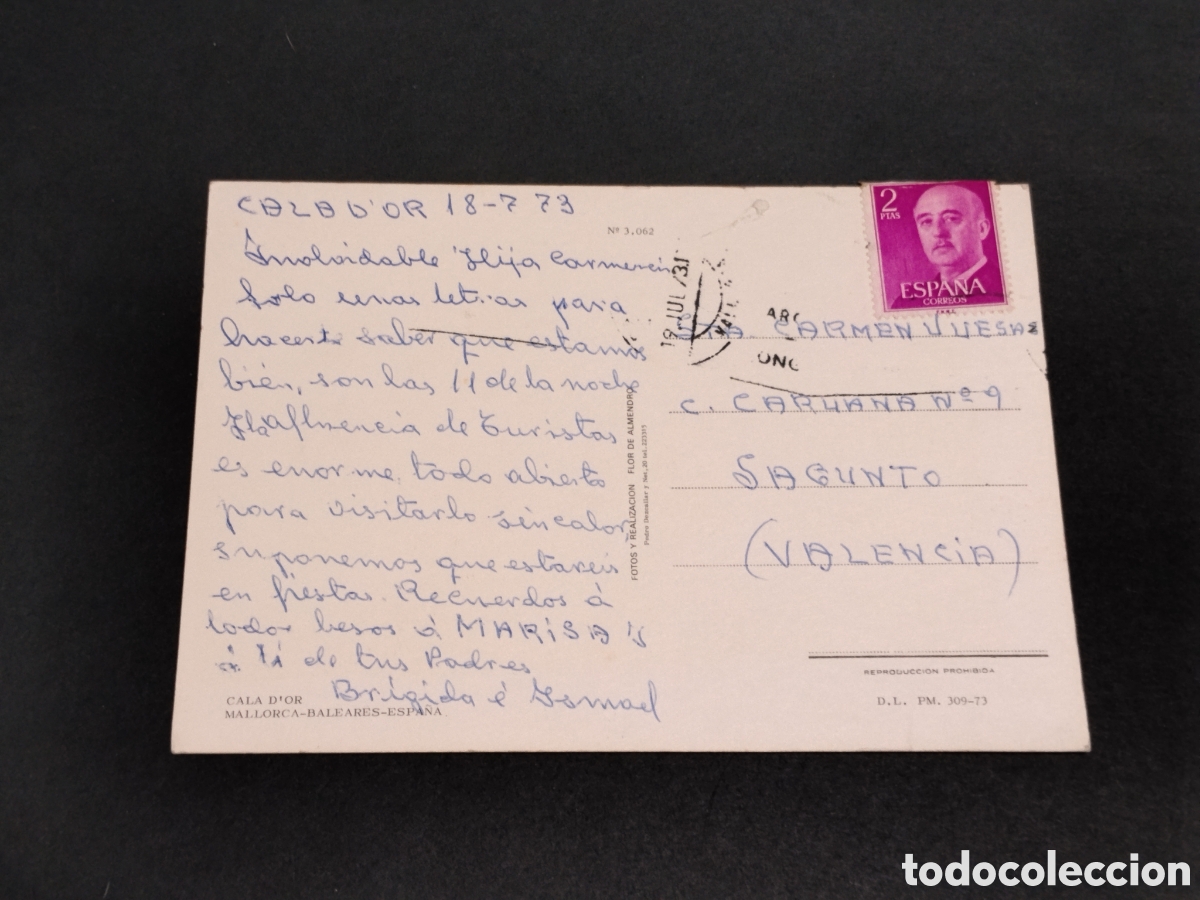 CALA D'OR 18-7 73
Nº 3.062
Inolvidable Hija Carmencin
Solo unas letras para
hacerte saber que estamos
bién, son las 11 de la noche
La afluencia de Turistas
es enorme, todo abierto
para visitarlo sin calor
suponemos que estareis
en fiestas. Recuerdos á
todos besos á MARISA y
á Ti de tus Padres
Brigida é Ismael
CALA D'OR
MALLORCA-BALEARES-ESPAÑA
FOTOS Y REALIZACION FLOR DE ALMENDRO
2
PTAS
ESPAÑA
CORREOS
18 JUL 73
ARC
ONC
SRTA. CARMEN
C. CARUANA Nº 9
SAGUNTO
(VALENCiA)
REPRODUCCION PROHIBIDA
D.L. PM. 309-73
todocoleccion